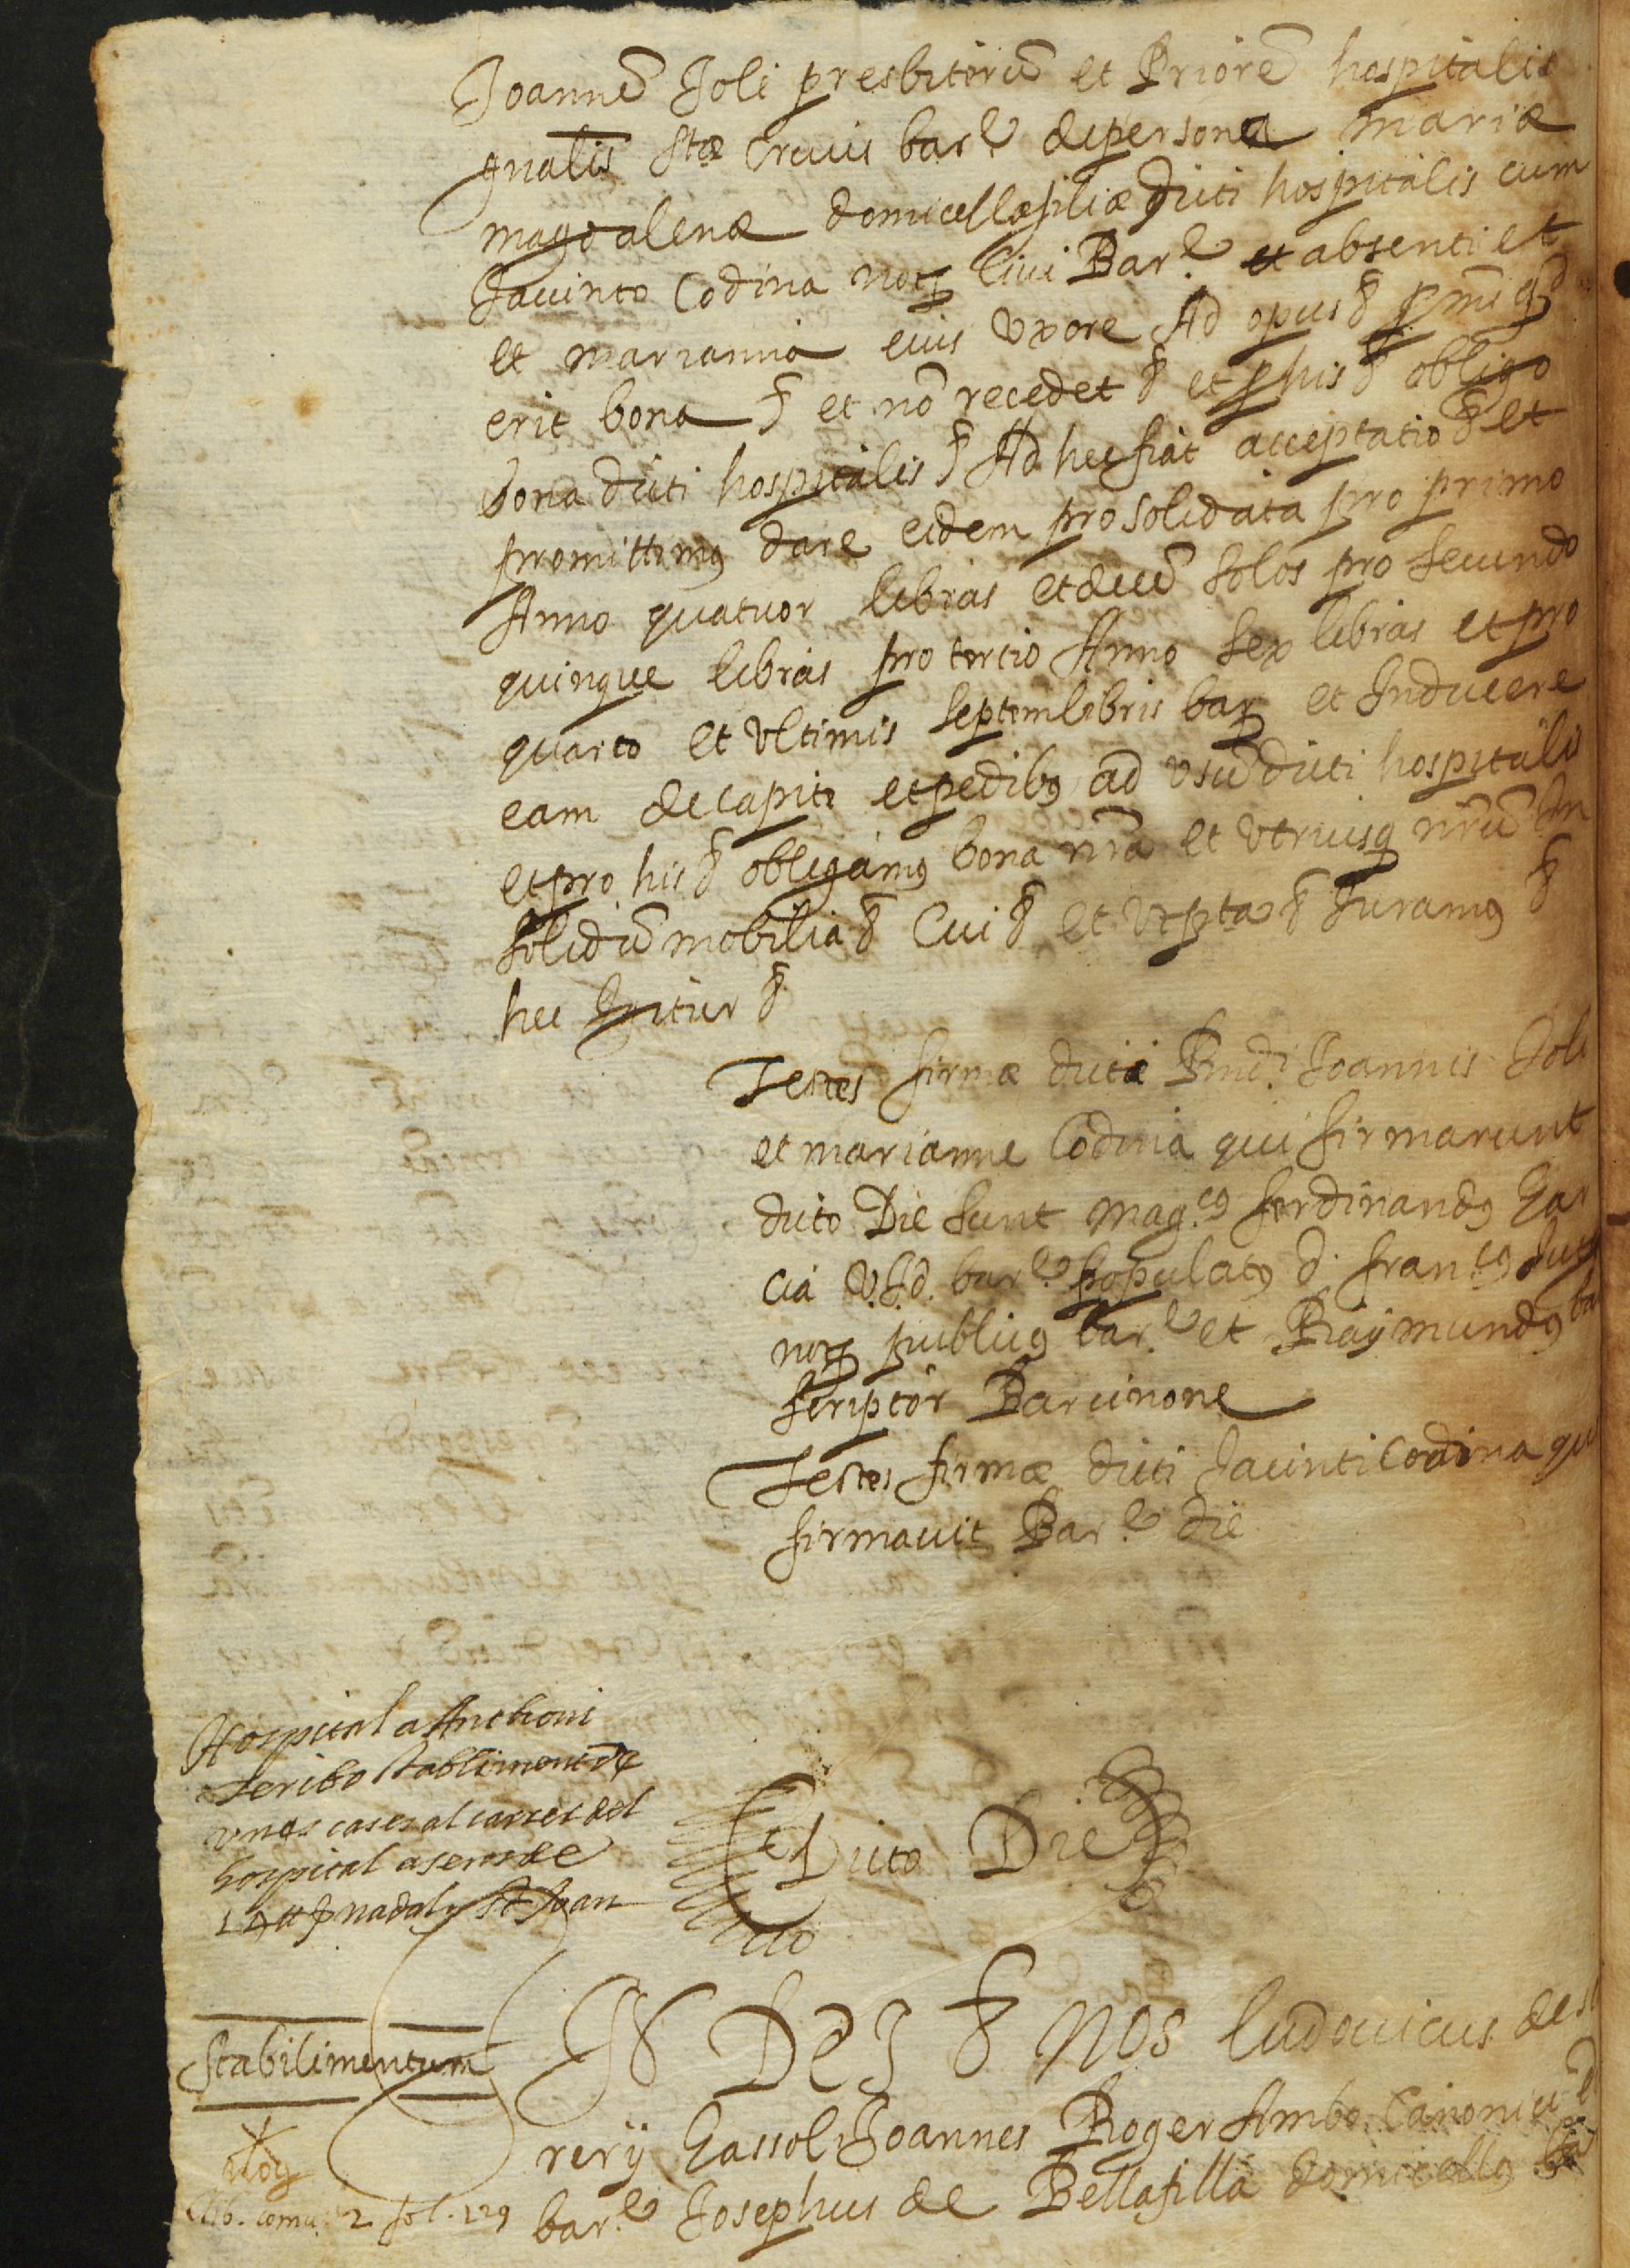 Joannē Joli presbiterū et Priorē hospitalis
gnalis Stæ Crucis barᵉ de persona mariæ
magdalenæ domicellæ filiæ dicti hospitalis cum
Jacinto Codina not' Civi Barᵉ et absenti et
et marianna eius uxore Ad opus &
erit bona & et nō recedet & et p his & obligo
bona dicti hospitalis & Ad hec fiat acceptatio & et
promittimus dare eidem pro solidata pro primo
Anno quatuor libras et decē solos pro secundo
quinque libras pro tercio Anno sex libras et pro
quarto et ultimis septem libris bar et Inducere
eam de capite et pedibus ad usū dicti hospitalis
et pro his & obligamus bona nrā et utriusq nrū In
solidū mobilia & Cui & et Juramus &
hec Igitur &
Testes firmæ dicti Rndi Joannis Joli
et marianne Codina qui firmarunt
dicto Die sunt magcus ferdinandus Gar
cia U.J.d. barᵉ populatus d. francus
not publicus barᵉ et Raymundus
scriptor Barcinone
Testes firmæ dicti Jacinti Codina qui
firmavit Barᵉ die
Hospital a Anthoni
Seribo stabliment de
unes cases al carrer del
hospital a sens de
p nadal y St Joan
Dicto Die
Stabilimentum
IN Dei & Nos ludovicus des
rery Gassol Joannes Roger Ambo Canonici
lib. comu. 2 fol. 129
barᵉ Josephus de Bellafilla domicellus